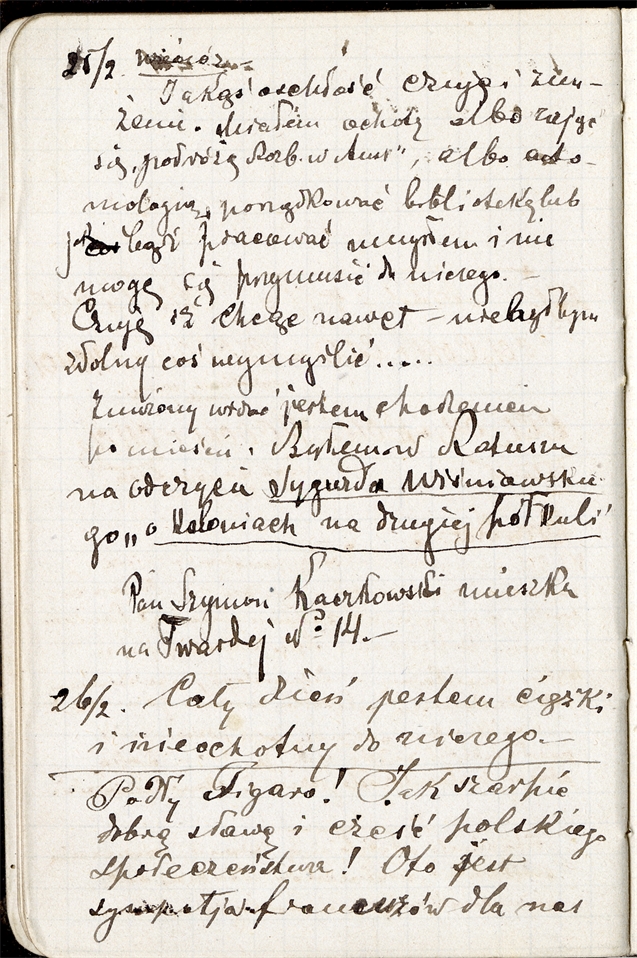 25/2. Wieczór.
Jakąś oschłość czuję i znu-
żenie. Miałem ochotę albo zająć
się „podróżą Rozb. w Amer", albo ento-
mologią, porządkować bibliotekę lub
też bądź pracować umysłem i nie
mogę się przymusić do niczego. –
Czuję iż chcąc nawet – nie byłbym
zdolny coś wymyślić.....
Znużony widać jestem chodzeniem
po mieście. Byłem w Ratuszu
na odczycie Sygurda Wiśniewskie-
go „o Koloniach na drugiej półkuli"
Pan Szymon Kaczkowski mieszka
na Twardej No 14. –
26/2. Cały dzień jestem ciężki
i nieochotny do niczego. –
Podły Figaro! Jak szarpie
dobrą sławę i cześć polskiego
społeczeństwa! Oto jest
sympatja francuzów dla nas